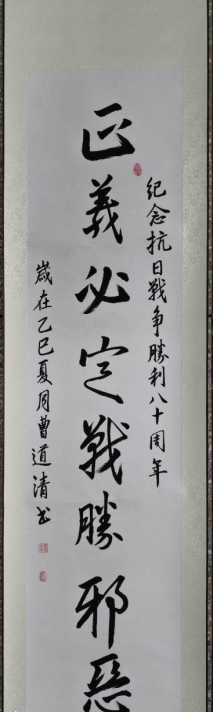 紀念抗日戰争勝利八十周年
正義必定戰勝邪惡
歲在乙巳夏月曹道清书